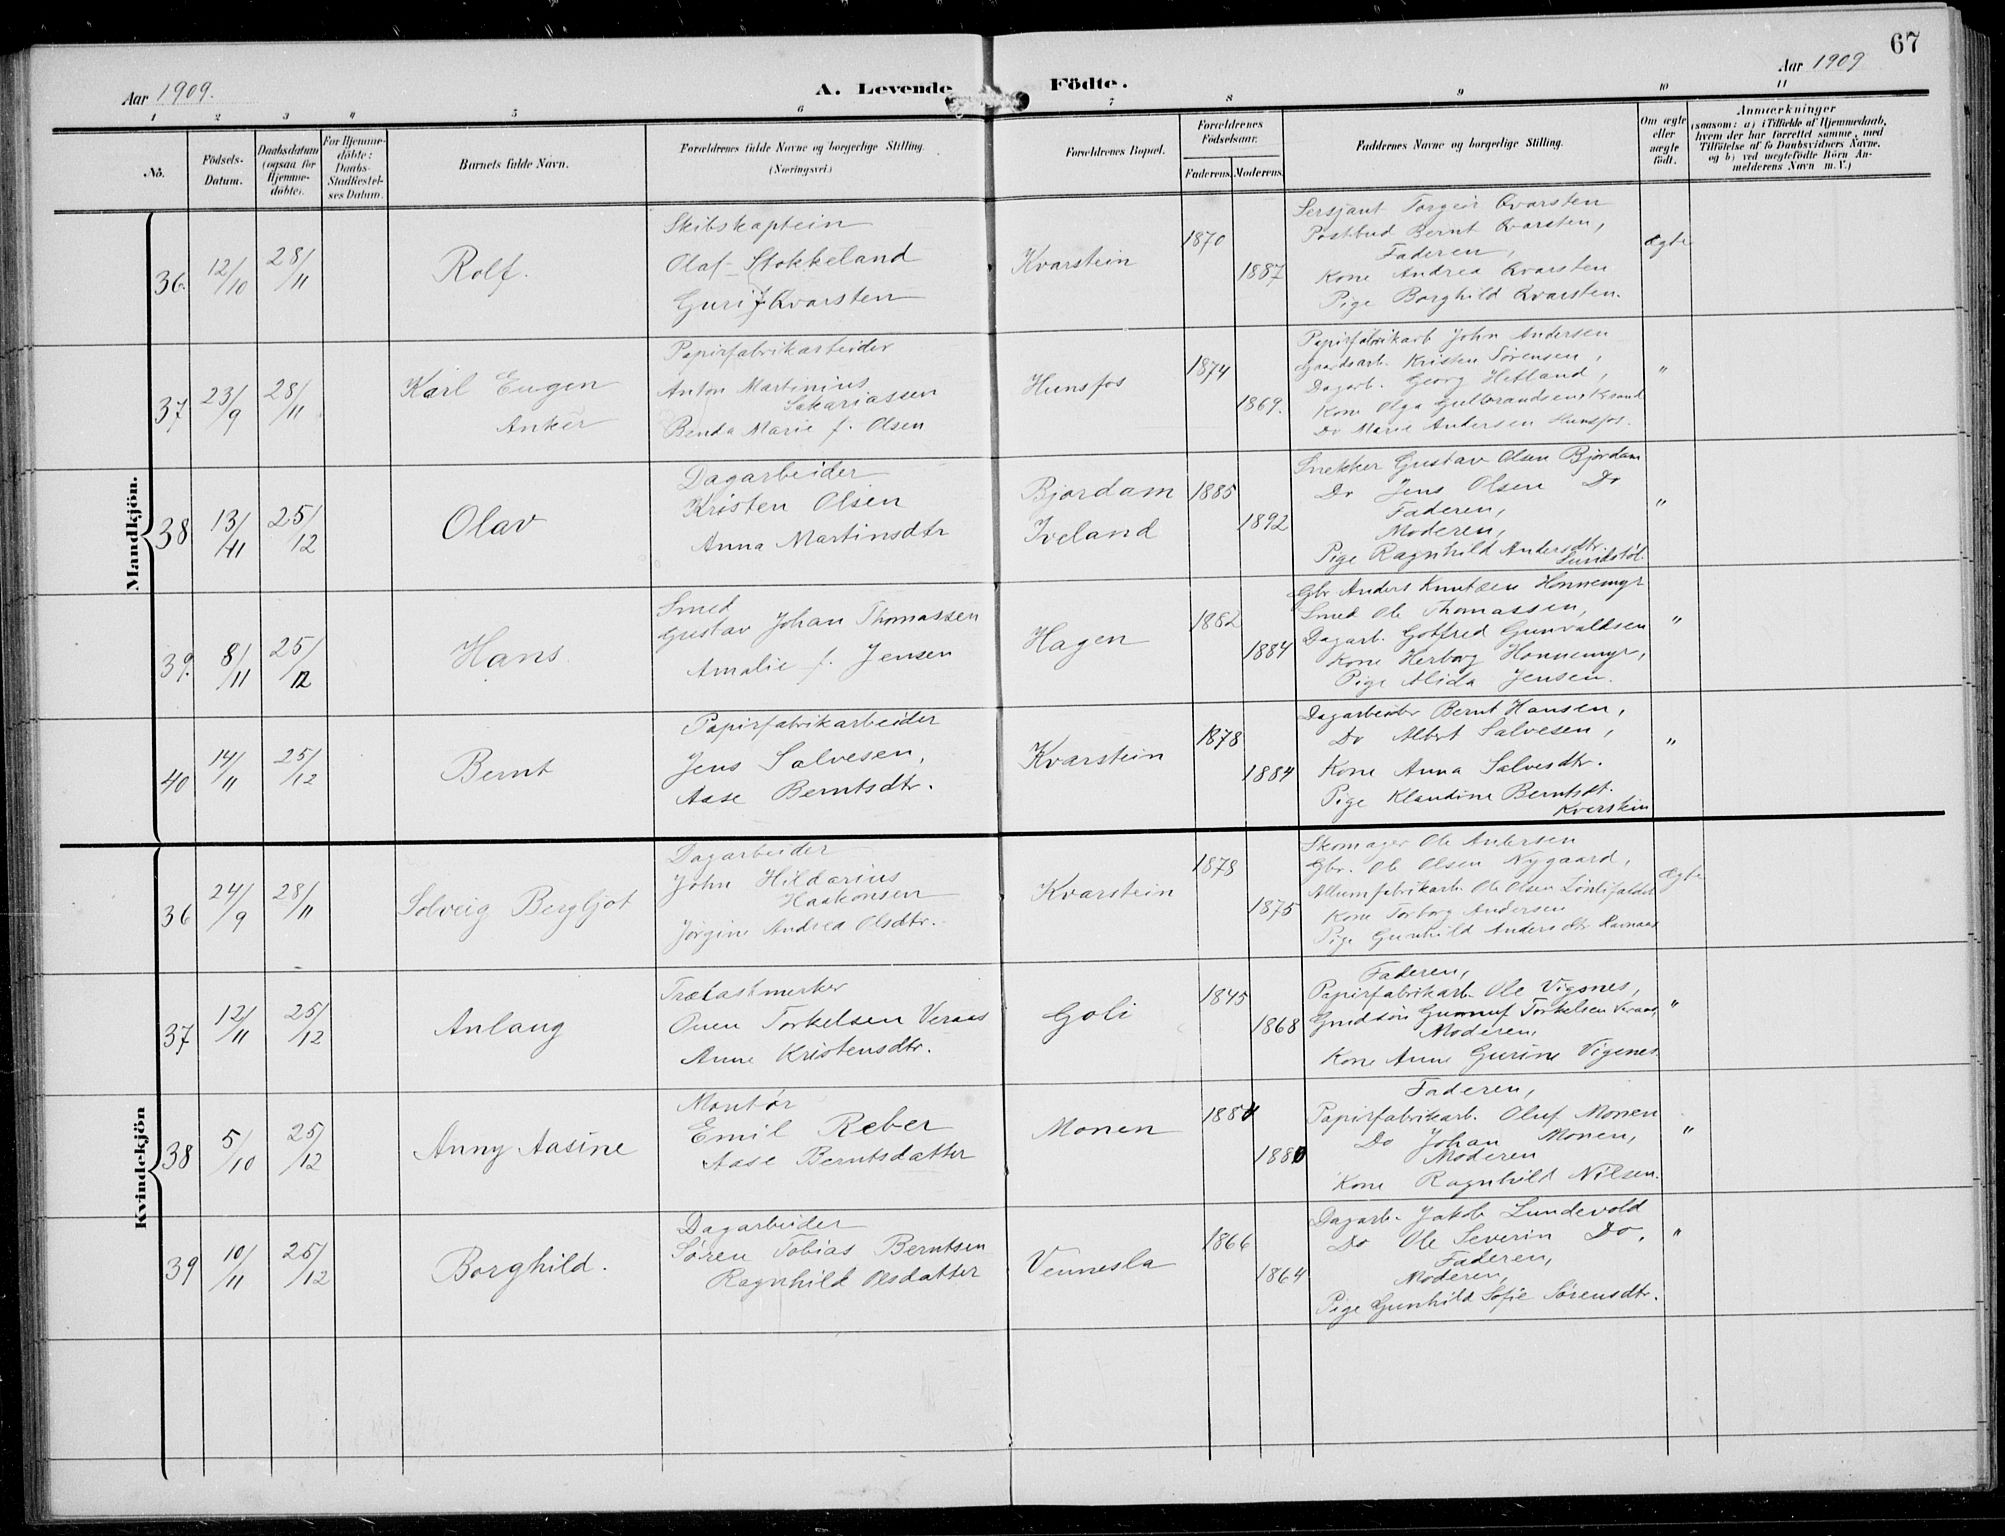 67
Aar 1909.
A. Levende Födte.
Aar 1909
1 2 3 4 5 6 7 8 9 10 11
No.
Födsels-
Datum.
Daabsdatum
(ogsaa for
Hjemme-
döbte).
For Hjemme-
döbte:
Daabs-
Stadfæstel-
ses Datum.
Barnets fulde Navn.
Forældrenes fulde Navne og borgerlige Stilling.
(Næringsvei.)
Forældrenes Bopæl.
Forældrenes
Födselsaar.
Faderens. Moderens.
Faddernes Navne og borgerlige Stilling.
Om ægte
eller
uægte
födt.
Anmærkninger
(saasom: a) i Tilfælde af Hjemmedaab,
hvem der har forrettet samme, med
Tilföielse af to Daabsvidners Navne,
og b) ved uægtefödte Börn An-
melderens Navn m. V.)
Mandkjön.
36. 12/10 28/11
Rolf.
Skibskaptein
Olaf Stokkeland
Guri f Kvarsten
Kvarstein
1870
1887
Sersjant Torgeir Qvarsten
Postbud Bernt Qvarsten,
Faderen,
Kone Andrea Qvarsten
Pige Borghild Qvarsten.
ægte
37 23/9 28/11
Karl Eugen
Anker
Papirfabrikarbeider
Anton Martinius
Sakariassen
Benda Marie f. Olsen
Hunsfos
1874
1869.
Papirfabrikarb John Andersen
Gaardsarb. Kristen Sørensen,
Dagarb. Georg Hetland,
Kone Olga Gulbrandsen, Krsand
Do Marie Andersen Hunsfos.
"
38 13/11 25/12
Olav
Dagarbeider
Kristen Olsen
Anna Martinsdtr
Bjordam
Iveland
1885
1892
Snekker Gustav Olsen Bjordam
Do Jens Olsen Do
Faderen,
Moderen,
Pige Ragnhild Andersdtr.
"
39. 8/11 25/12
Hans.
Smed
Gustav Johan Thomassen
Amalie f. Jensen
Hagen
1882
1884
Gbr Anders Knutsen Honnemyr
Smed Ole Thomassen,
Dagarb. Gotfred Gunvaldsen
Kone Herborg Honnemyr,
Pige Alida Jensen.
"
40 14/11 25/12
Bernt
Papirfabrikarbeider
Jens Salvesen,
Aase Berntsdtr.
Kvarstein
1878
1884
Dagarbeider Bernt Hansen,
Do Albert Salvesen,
Kone Anna Salvesdtr.
Pige Klandine Berntsdt.
Kverstein
"
Kvindekjön
36 24/9 28/11
Solveig Bergljot
Dagarbeider
John Hildarius
Haakonsen
Jørgine Andrea Olsdtr.
Kvarstein
1878
1875
Skomager Ole Andersen
Gbr. Ole Olsen Nygaard,
Kone Torborg Andersen
Pige Gunhild Andersdtr Ravnaas
ægte
37 12/11 25/12
Anlaug
Trælastmerker
Onen Torkelsen Veraas
Anne Kristensdtr.
Goli
1845
1868
Faderen,
Papirfabrikarb. Ole Vigsnes,
Gunnuf Torkelsen Veraas,
Moderen,
Kone Anne Gurine Vigsnes.
"
38 5/10 25/12
Anny Aasine
Montør
Emil Reber
Aase Berntsdatter
Monen
1884
1880
Faderen,
Papirfabrikarb. Oluf Monen
Do Johan Monen,
Moderen
Kone Ragnhild Nilsen.
"
39 10/11 25/12
Borghild.
Dagarbeider
Søren Tobias Berntsen
Ragnhild Olsdatter
Vennesla
1866
1864
Dagarb. Jakob Lundevold
Do Ole Severin Do,
Faderen,
Moderen,
Pige Gunhild Sofie Sørensdtr.
"